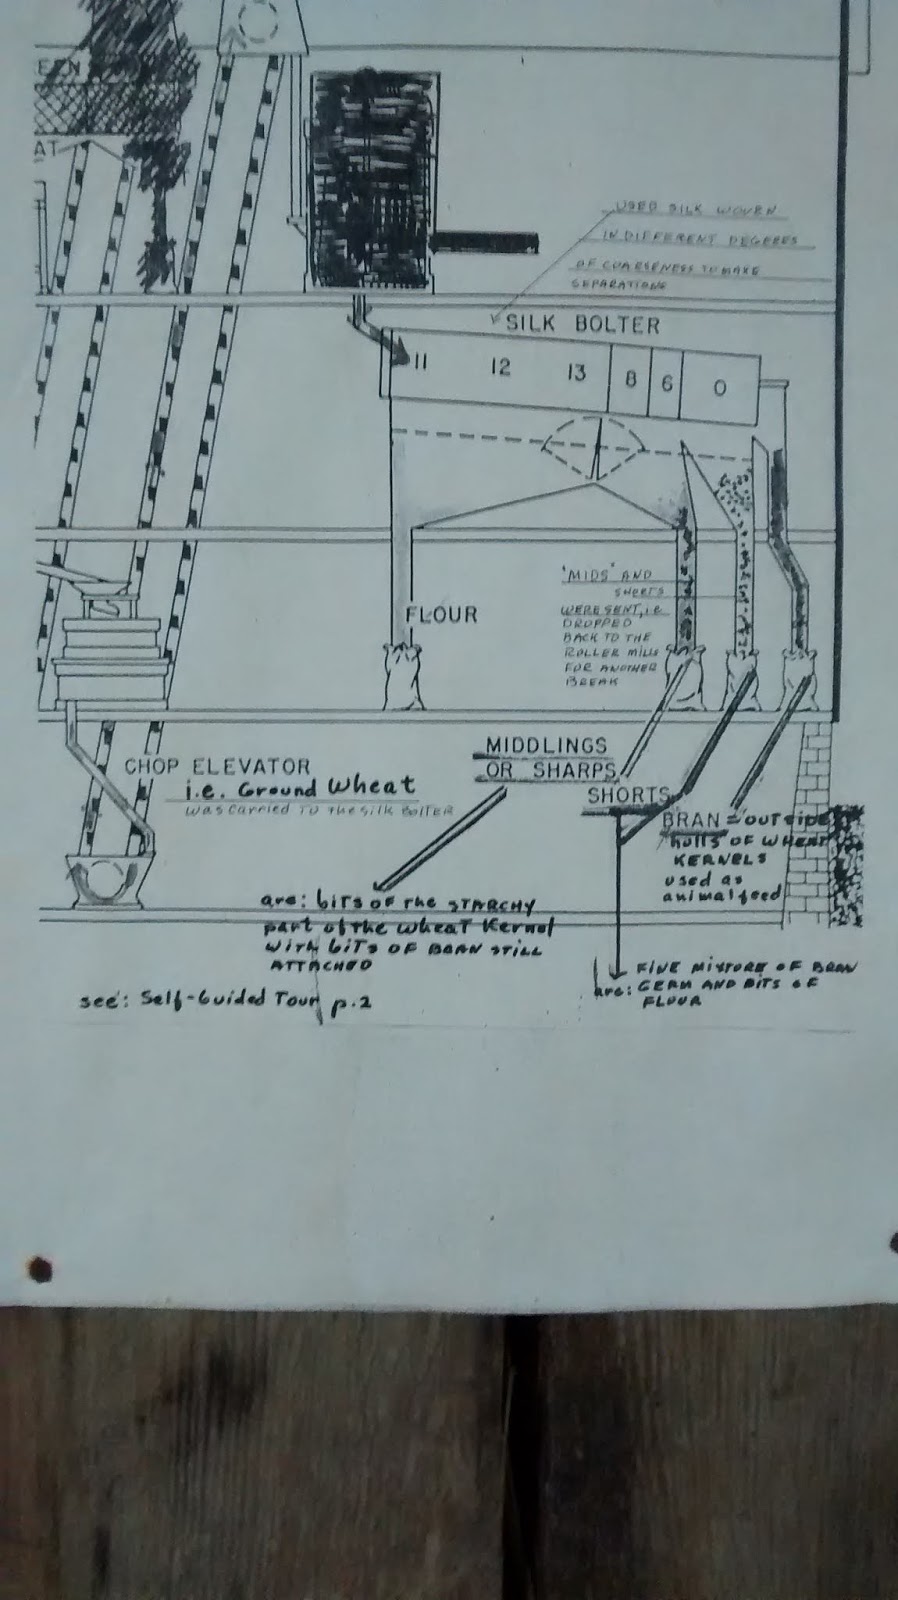 EEN
AT
USED SILK WOVRN
IN DIFFERENT DEGREES
OF COARSENESS TO MAKE
SEPARATIONS
SILK BOLTER
11 12 13 8 6 0
'MIDS' AND
SHORTS
WERE SENT, i.e.
DROPPED
BACK TO THE
ROLLER MILLS
FOR ANOTHER
BREAK
FLOUR
MIDDLINGS
OR SHARPS
CHOP ELEVATOR
i.e. Ground Wheat
was carried to the silk bolter
SHORTS
BRAN = outside
hulls of wheat
KERNELS
used as
animal feed
are: bits of the STARCHY
part of the wheat Kernel
with bits of BRAN STILL
ATTACHED
see: Self-Guided Tour p.2
FINE MIXTURE OF BRAN
are: GERM AND BITS OF
FLOUR